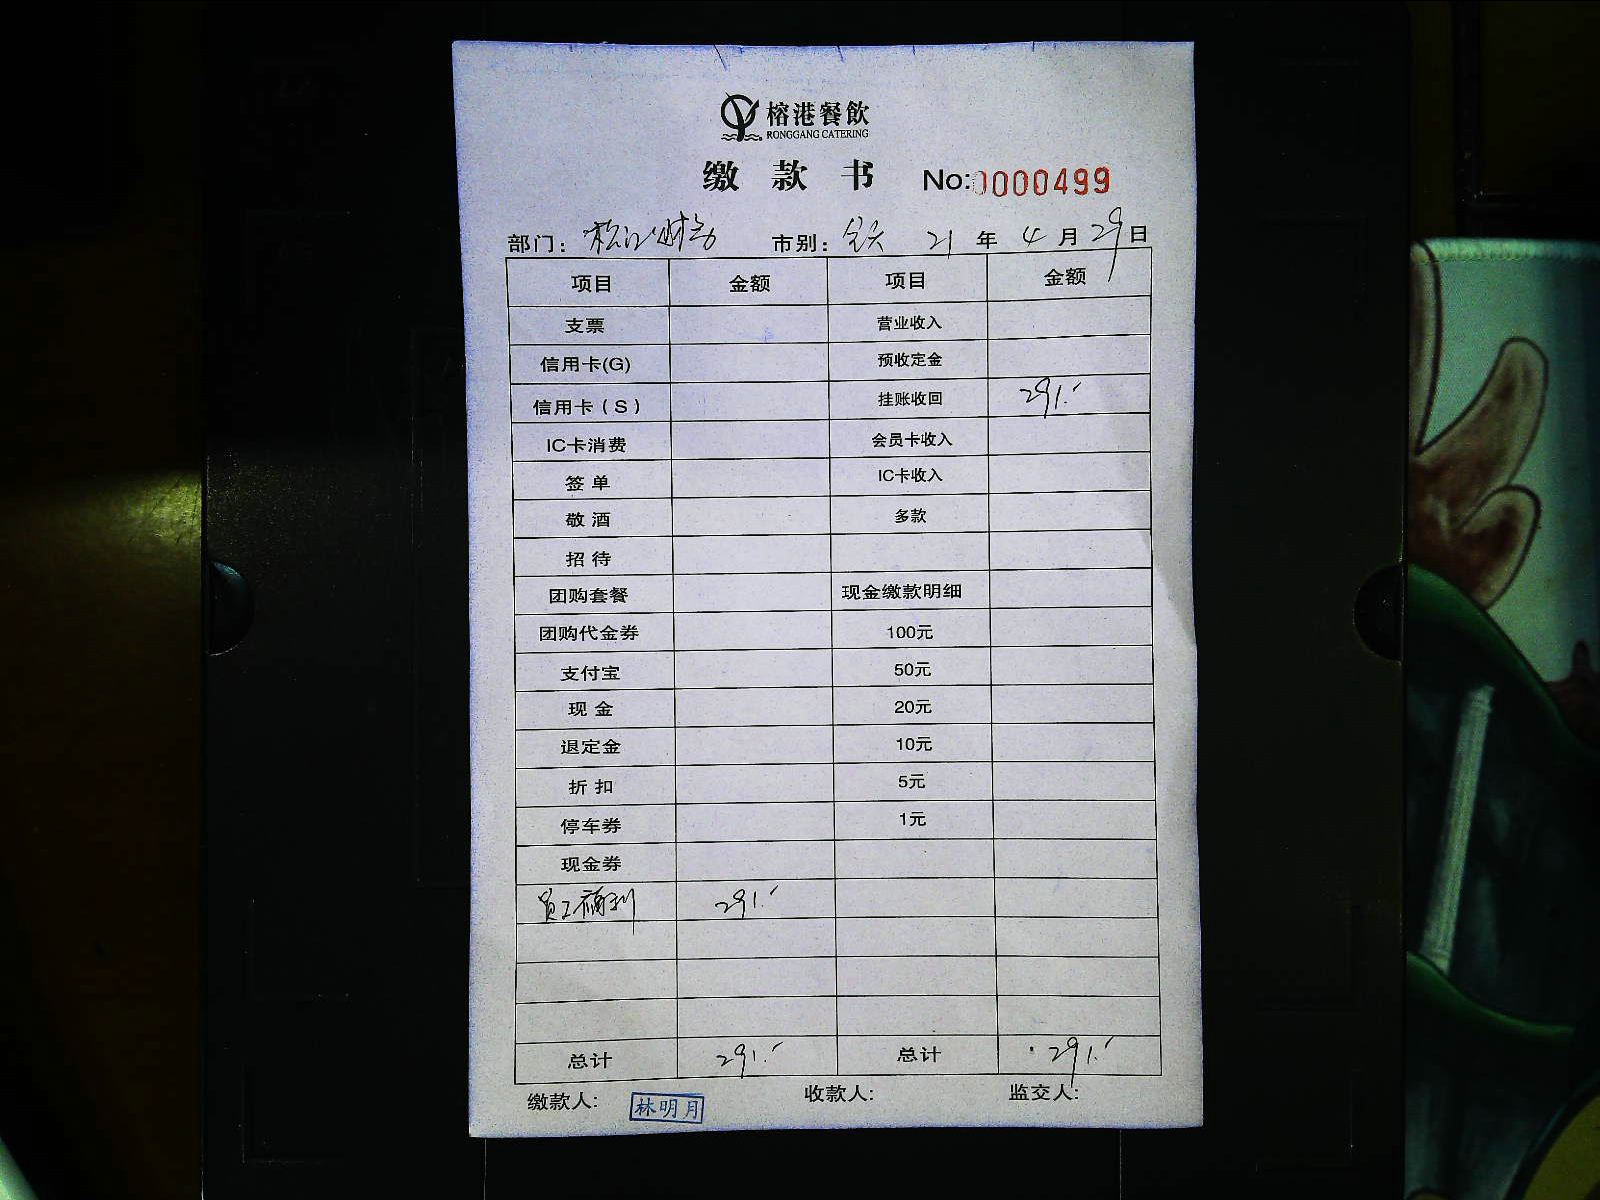 榕港餐飲
RONGGANG CATERING
缴款书 No:0000499
部门：松江财务 市别：全天 21年4月29日
项目 金额 项目 金额
支票 营业收入
信用卡(G) 预收定金
信用卡（S） 挂账收回 291.-
IC卡消费 会员卡收入
签单 IC卡收入
敬酒 多款
招待
团购套餐 现金缴款明细
团购代金券 100元
支付宝 50元
现金 20元
退定金 10元
折扣 5元
停车券 1元
现金券
员工福利 291.-
总计 291.- 总计 291.-
缴款人: 林明月 收款人: 监交人: